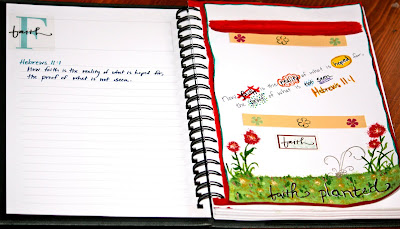 F
faith
Hebrews 11:1
Now faith is the reality of what is hoped for,
the proof of what is not seen.
Now faith is the reality of what is hoped for,
the proof of what is not seen.
Hebrews 11:1
faith
faith's planted